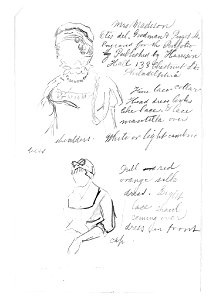 Mrs. Madison
Otis del. Goodman & Piggot Sc.
Engraved for the Portfolio
by Published by Harrison
Hall 133 Chestnut St.
Philadelphia
Fine lace collar
Head dress looks
like lace. Lace
mantilla over
shoulders. White or light
Full red
orange silk
dress.
lace shawl
coming over
dress in front
cap.